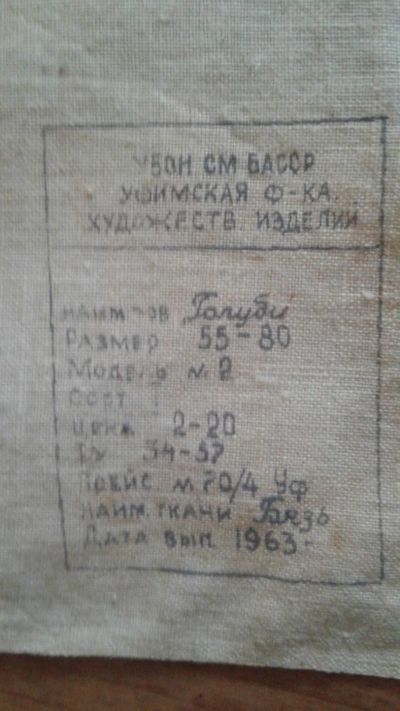 УБОН СМ БАССР
УФИМСКАЯ Ф-КА
ХУДОЖЕСТВ. ИЗДЕЛИЙ
НАИМ ТОВ Голуби
РАЗМЕР 55-80
МОДЕЛЬ № 2
СОРТ
ЦЕНА 2-20
ТУ 34-57
М 70/4 Уф
НАИМ. ТКАНИ Бязь
ДАТА ВЫП. 1963-